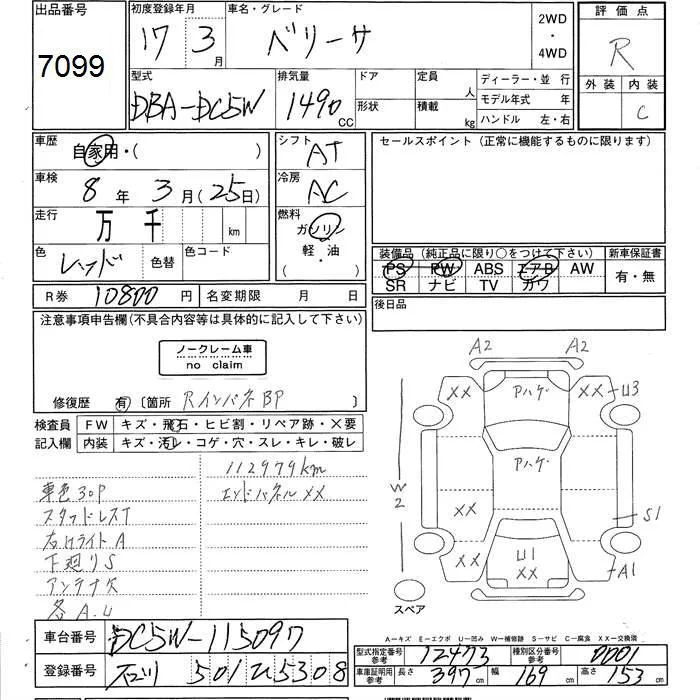 出品番号
7099
初度登録年月
17 3月
車名・グレード
ベリーサ
2WD
・
4WD
評価点
R
外装 内装
C
型式
DBA-DC5W
排気量
1490 CC
ドア
形状
定員 人
積載 kg
ディーラー・並行
モデル年式 年
ハンドル 左・右
車歴
自家用・( )
シフト
AT
セールスポイント (正常に機能するものに限ります)
車検
8年 3月(25日)
冷房
AC
走行
万 千 km
燃料
ガソリン
軽・油
( ・ )
色
レッド
色替
色コード
装備品 (純正品に限り○をつけて下さい)
PS PW ABS エアB AW
SR ナビ TV カワ
新車保証書
有・無
R券 10800円
名変期限 月 日
後日品
注意事項申告欄(不具合内容等は具体的に記入して下さい)
ノークレーム車
no claim
修復歴 有 〔箇所 RインパネBP 〕
検査員
記入欄
FW キズ・飛石・ヒビ割・リペア跡・X要
内装 キズ・汚レ・コゲ・穴・スレ・キレ・破レ
112979km
エンドパネルXX
車色30P
スタッドレスT
右Hライト A
下廻りS
アンテナ欠
各A.U
A2 A2
XX Pハゲ XX U3
Pハゲ
W2
XX
S1
XX U1
XX
A1
スペア
A−キズ E−エクボ U−凹み W−補修跡 S−サビ C−腐食 XX−交換済
車台番号 DC5W-115097
登録番号 石川 501 ひ5308
型式指定番号
参考
12473
種別区分番号
参考
0001
車庫証明用
参考
長さ 397cm
幅 169cm
高さ 153cm